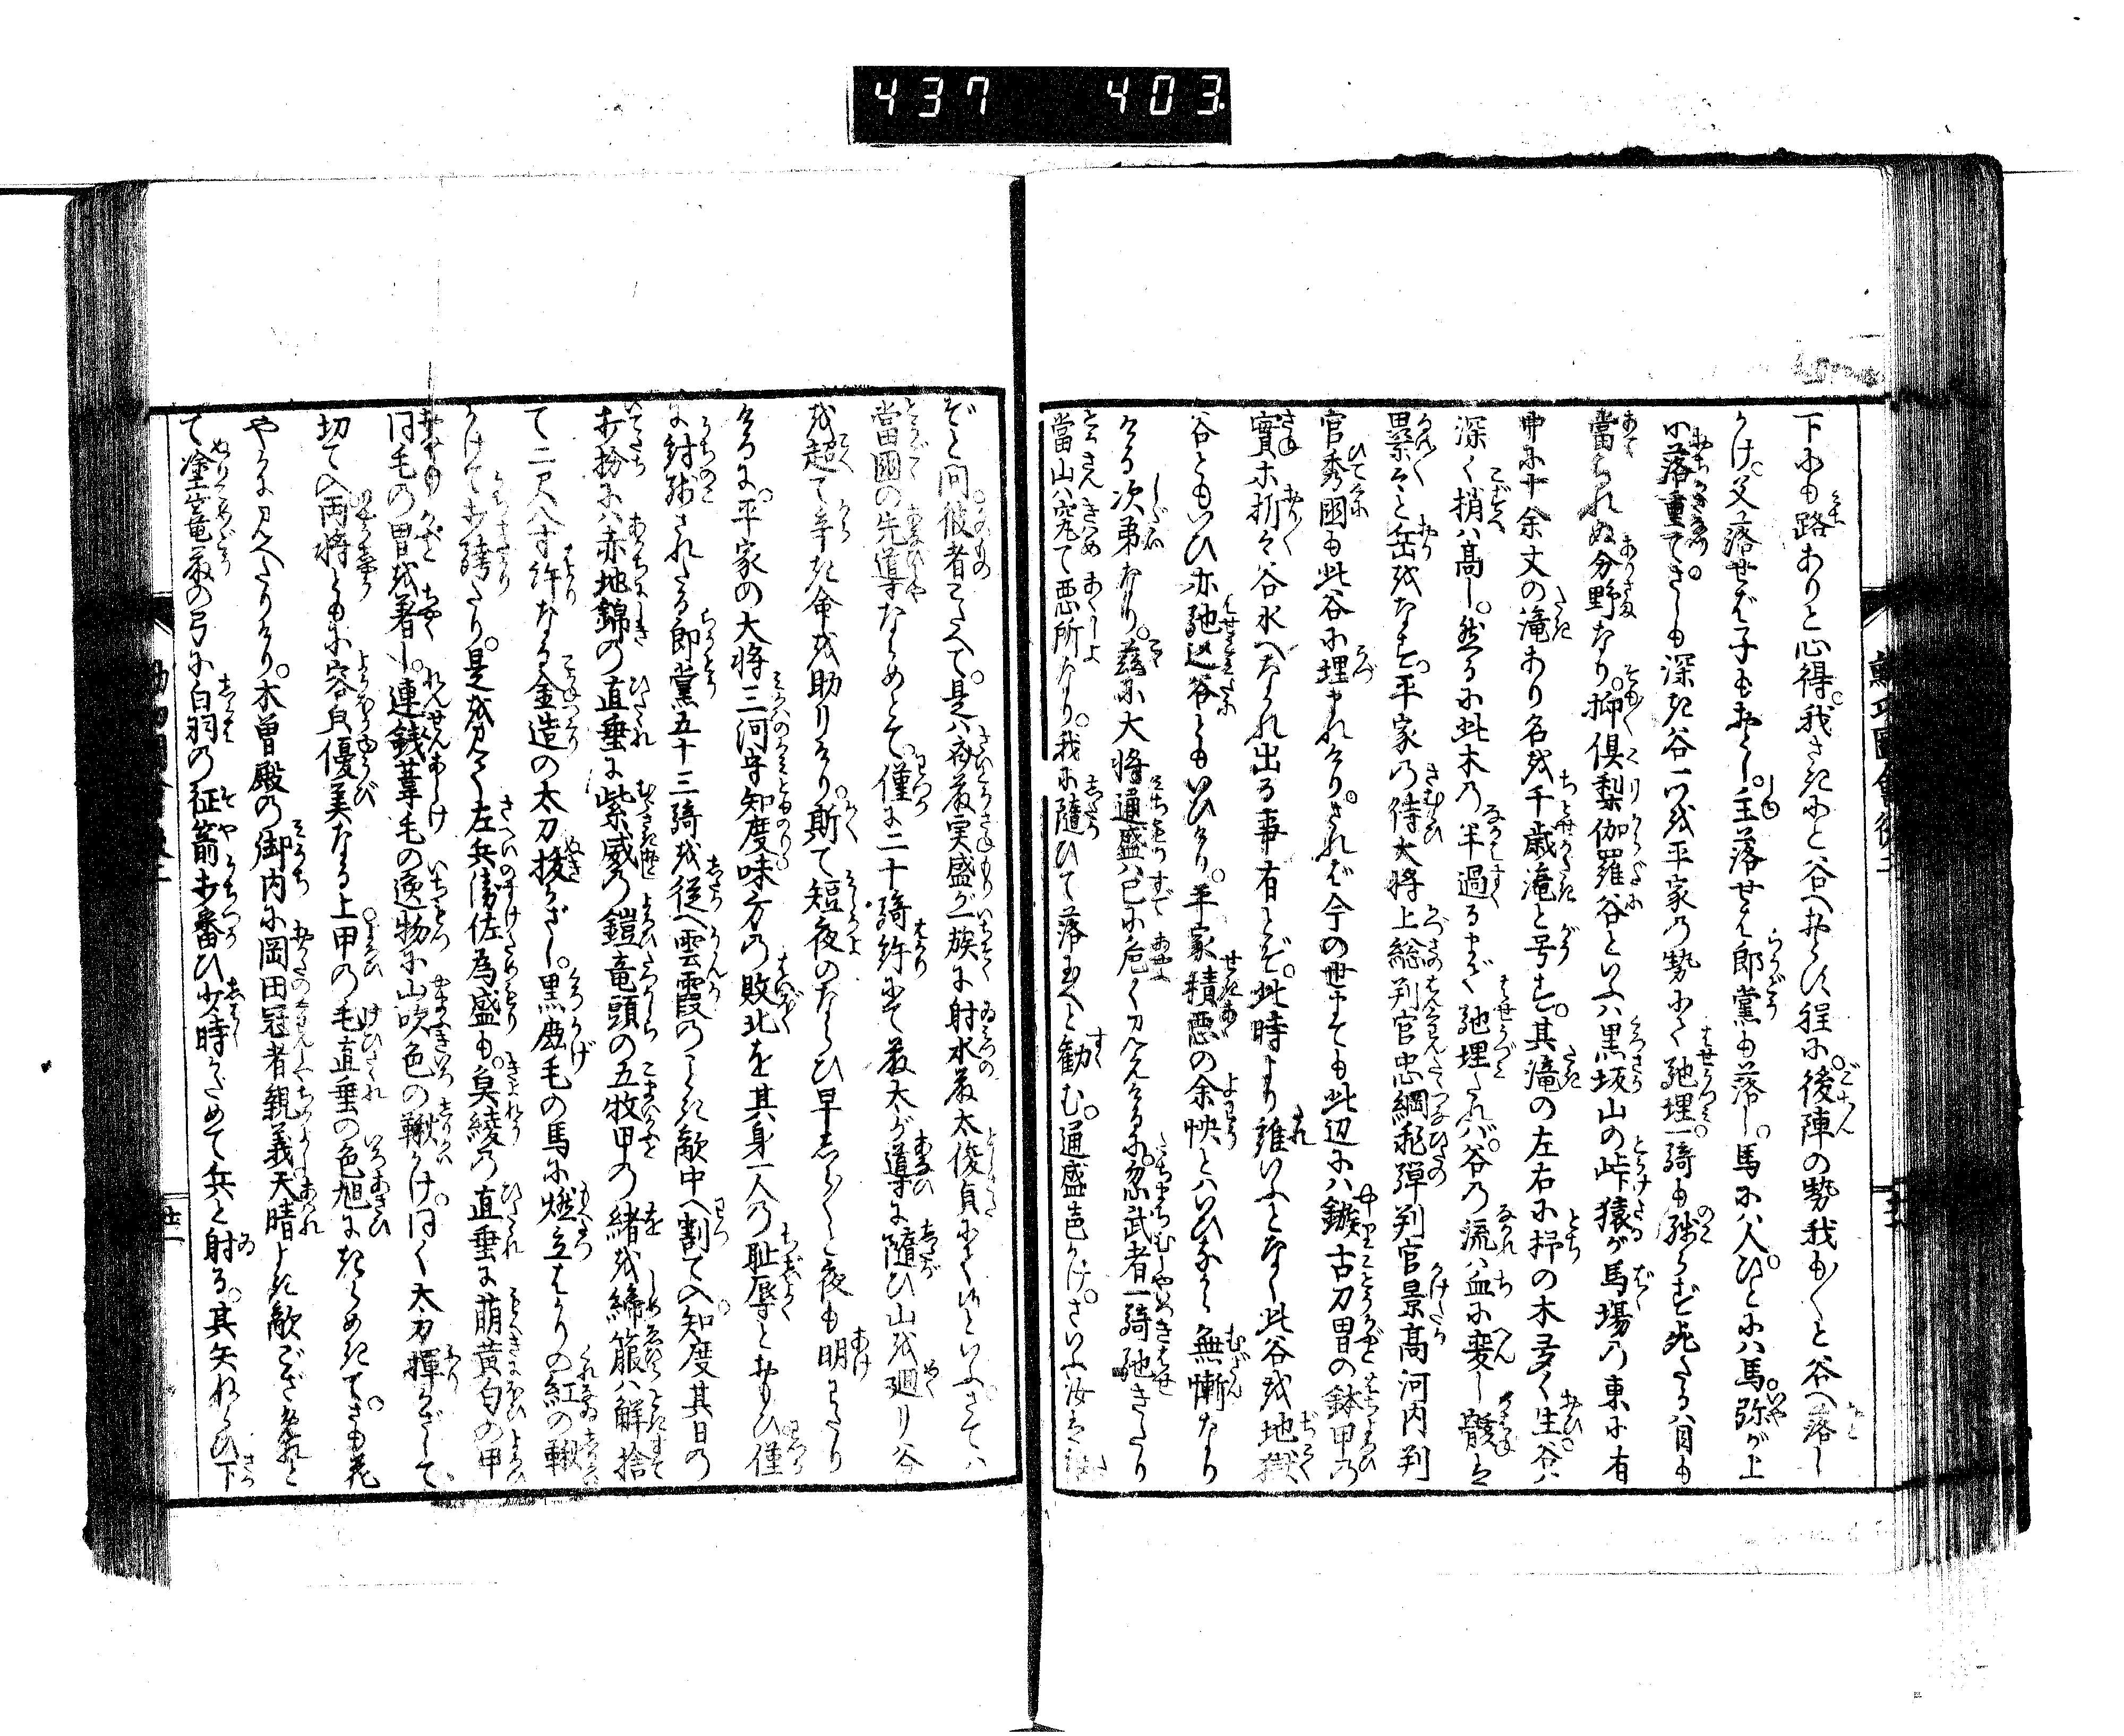 437 403
下にも路ありと心得。我さきにと谷へおとす程に。後陣の勢我も〳〵と谷へ落し
かけ。父落せば子もおとし。主落せば郎党も落し。馬には人。ひとには馬。弥が上
に落重て。さしも深き谷一つを平家の勢にて馳埋一騎も残らず死たるは目も
當られぬ分野なり。抑倶梨伽羅谷といふは黒坂山の峠猿が馬場の東に有
中に十余丈の滝あり名を千歳滝と号す。其滝の左右に杼の木多く生谷は
深く梢は高し。然るに此木の半過るまで馳埋たれば。谷の流は血に変し骸は
累々と岳をなす。平家の侍大将上総判官忠綱飛弾判官景高河内判
官秀國も此谷に埋まれけり。されば今の世までも此辺には鏃古刀冑の鉢甲の
實木折々谷水へながれ出る事有とぞ。此時より誰いふとなく此谷を地獄
谷ともいひ亦馳込谷ともいひけり。平家積悪の余映とはいひながら無慚なり
ける次第なり。茲に大将通盛は已に危く見えけるに。忽武者一騎馳きたり
當山は究て悪所なり。我に隨ひて落玉へと勧む。通盛色かけ。さいふ汝は
ぞと問。彼者こたへて。是は斎藤実盛が一族に射水藤太俊貞にて候といふ。さては
當國の先導ならめとて。僅に二十騎許にて藤太が導に隨ひ山を廻り谷
を超て辛き命を助りけり。斯て短夜のならひ早しら〳〵と夜も明わたり
けるに。平家の大将三河守知度味方の敗北を其身一人の耻辱とおもひ僅
に討残されたる郎黨五十三騎を従へ雲霞のごとき敵中へ割て入。知度其日の
打扮には赤地錦の直垂に紫威の鎧竜頭の五枚甲の緒を締箙は解捨
て二尺八寸許なる金造の太刀抜かざし。黒鹿毛の馬に燃立ばかりの紅の鞦
かけて打跨たり。是を見て左兵衛佐為盛も。魚綾の直垂に萌黄匂の甲
同毛の冑を着し。連銭葦毛の逸物に山吹色の鞦かけ。同く太刀揮かざして
切て入両将ともに容皃優美なる上甲の毛直垂の色旭にきらめきて。さも花
やかに見へたりけり。木曽殿の御内に岡田冠者親義天晴よき敵ござんなれと
て塗籠藤の弓に白羽の征箭打番ひ少時かためて兵と射る。其矢ねらひ下